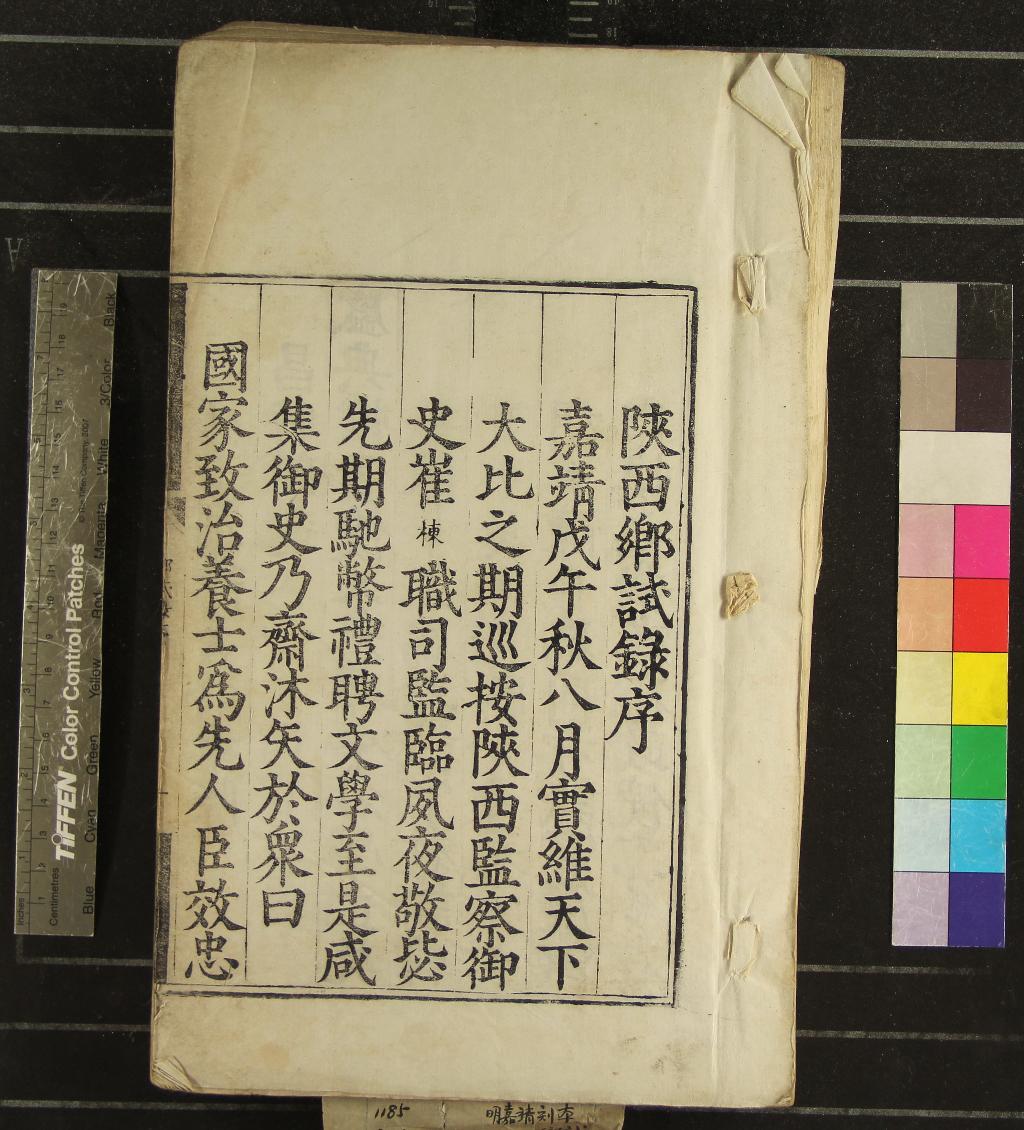 陝西鄉試錄序
嘉靖戊午秋八月實維天下
大比之期巡按陝西監察御
史崔棟職司監臨夙夜敬毖
先期馳幣禮聘文學至是咸
集御史乃齋沐矢於衆曰
國家致治養士爲先人臣效忠
TIFFEN Color Control Patches
Blue Cyan Green Yellow Red Magenta White 3/Color Black
Inches
Centimetres
1185
明嘉靖刻本
A